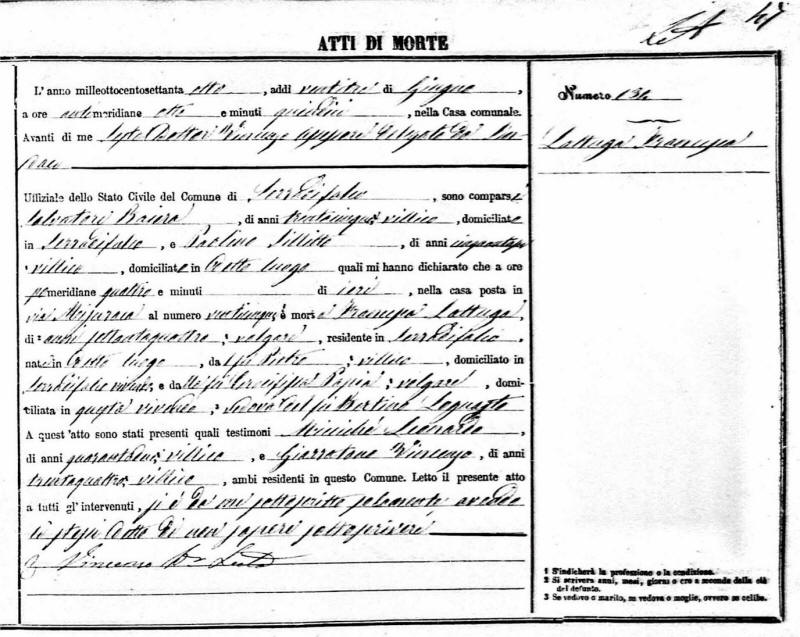 ATTI DI MORTE
L'anno milleottocentosettanta otto, addì ventitre di Giugno,
a ore antimeridiane otto e minuti quindici, nella Casa comunale.
Avanti di me Dottor Vincenzo
Uffiziale dello Stato Civile del Comune di Serradifalco, sono comparsi
Salvatore Baiera, di anni trentacinque; villico, domiciliato
in Serradifalco, e Paolino Lillitto, di anni
villico, domiciliato in detto luogo quali mi hanno dichiarato che a ore
pomeridiane quattro e minuti di ieri, nella casa posta in
via al numero venticinque è morta Lattuga
di anni settantaquattro; volgare, residente in Serradifalco,
nata in detto luogo, da fu Pietro; villico, domiciliato in
Serradifalco e da fu Crocifissa; volgare, domi-
ciliata in questa vivendo; vedova del fu
A quest'atto sono stati presenti quali testimoni Leonardo
di anni; villico, e Giarratano Vincenzo, di anni
trentaquattro; villico, ambi residenti in questo Comune. Letto il presente atto
a tutti gl'intervenuti, si è da me sottoscritto solamente avendo
li stessi detto di non sapere sottoscrivere
Vincenzo
Numero 134
Lattuga
1 S'indicherà la professione o la condizione.
2 Si scrivera anni, mesi, giorni o ore a seconda della età
del defunto.
3 Se vedovo o marito, se vedova o moglie, ovvero se celibe.